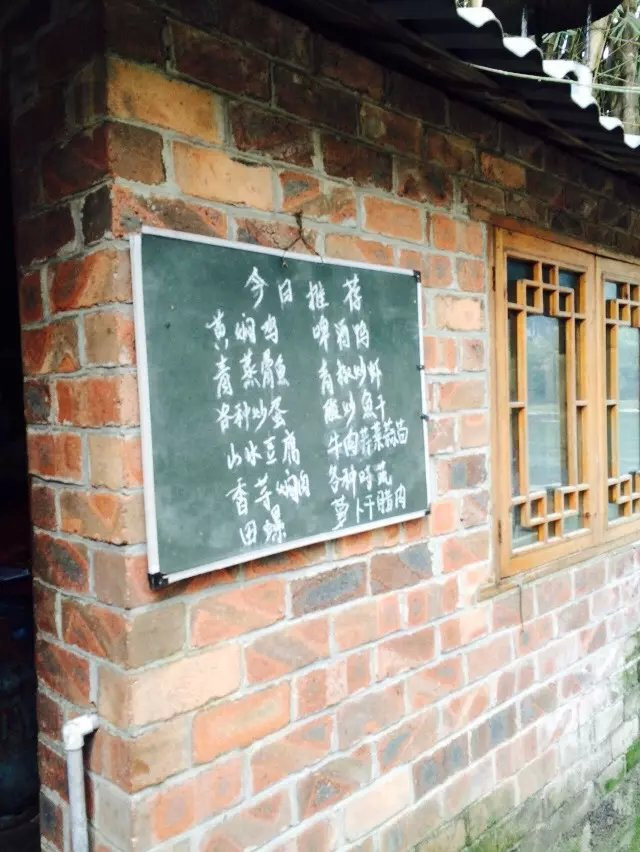 今日推荐
黄焖鸡 啤酒鸭
蒸骨鱼 青椒炒虾
各种炒蛋 酸炒鱼干
山水豆腐 牛肉蒜苗
香芋焖肉 各种时蔬
田螺 萝卜干腊肉